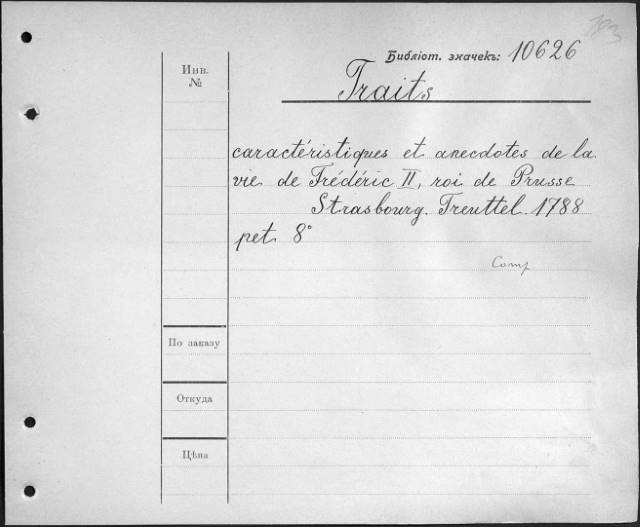 183
Библіот. значекъ: 10626
Инв.
№
Traits
caractéristiques et anecdotes de la
vie de Frédéric II, roi de Prusse
Strasbourg. Treuttel. 1788
pet 8°
Comp
По заказу
Откуда
Цѣна